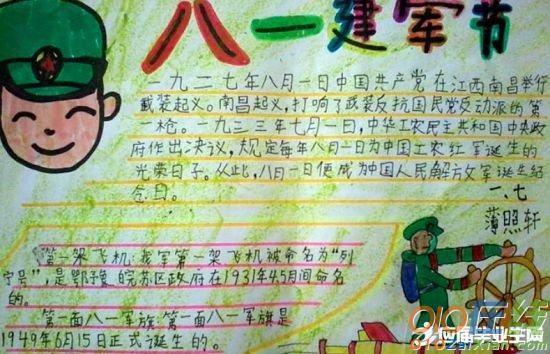 八一建军节
一九二七年八月一日中国共产党在江西南昌举行
武装起义。南昌起义,打响了武装反抗国民党反动派的第
一枪。一九三三年七月一日,中华工农民主共和国中央政
府作出决议,规定每年八月一日为中国工农红军诞生的
光荣日子。从此,八月一日便成为中国人民解放军诞生纪
念日。
一、七
薄照轩
第一架飞机:我军第一架飞机被命名为“列
宁号”,是鄂豫皖苏区政府在1931年4.5月间命名
的。
第一面八一军旗:第一面八一军旗是
1949年6月15日正式诞生的。
910在线
910zaixian.com
应届毕业生网